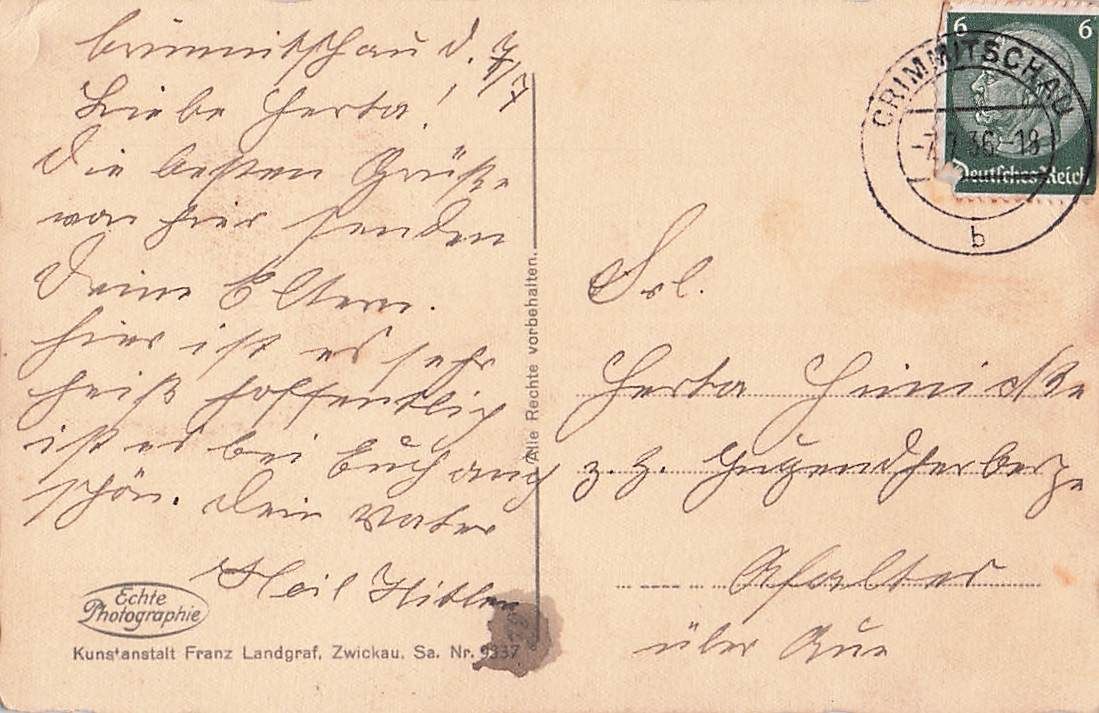 Crimmitschau d. 7/7
Liebe Herta!
Die besten Grüße
von hier senden
Deine Eltern.
hier ist es sehr
heiß hoffentlich
ist es bei Euch auch
schön. Dein Vater
Heil Hitler
Echte
Photographie
Kunstanstalt Franz Landgraf, Zwickau. Sa. Nr. 9337
Alle Rechte vorbehalten.
6 6
Deutsches Reich
CRIMMITSCHAU
-7.7.36.-18
b
Frl.
Herta
z. Z. Jugendherberge
Afalter
über Aue